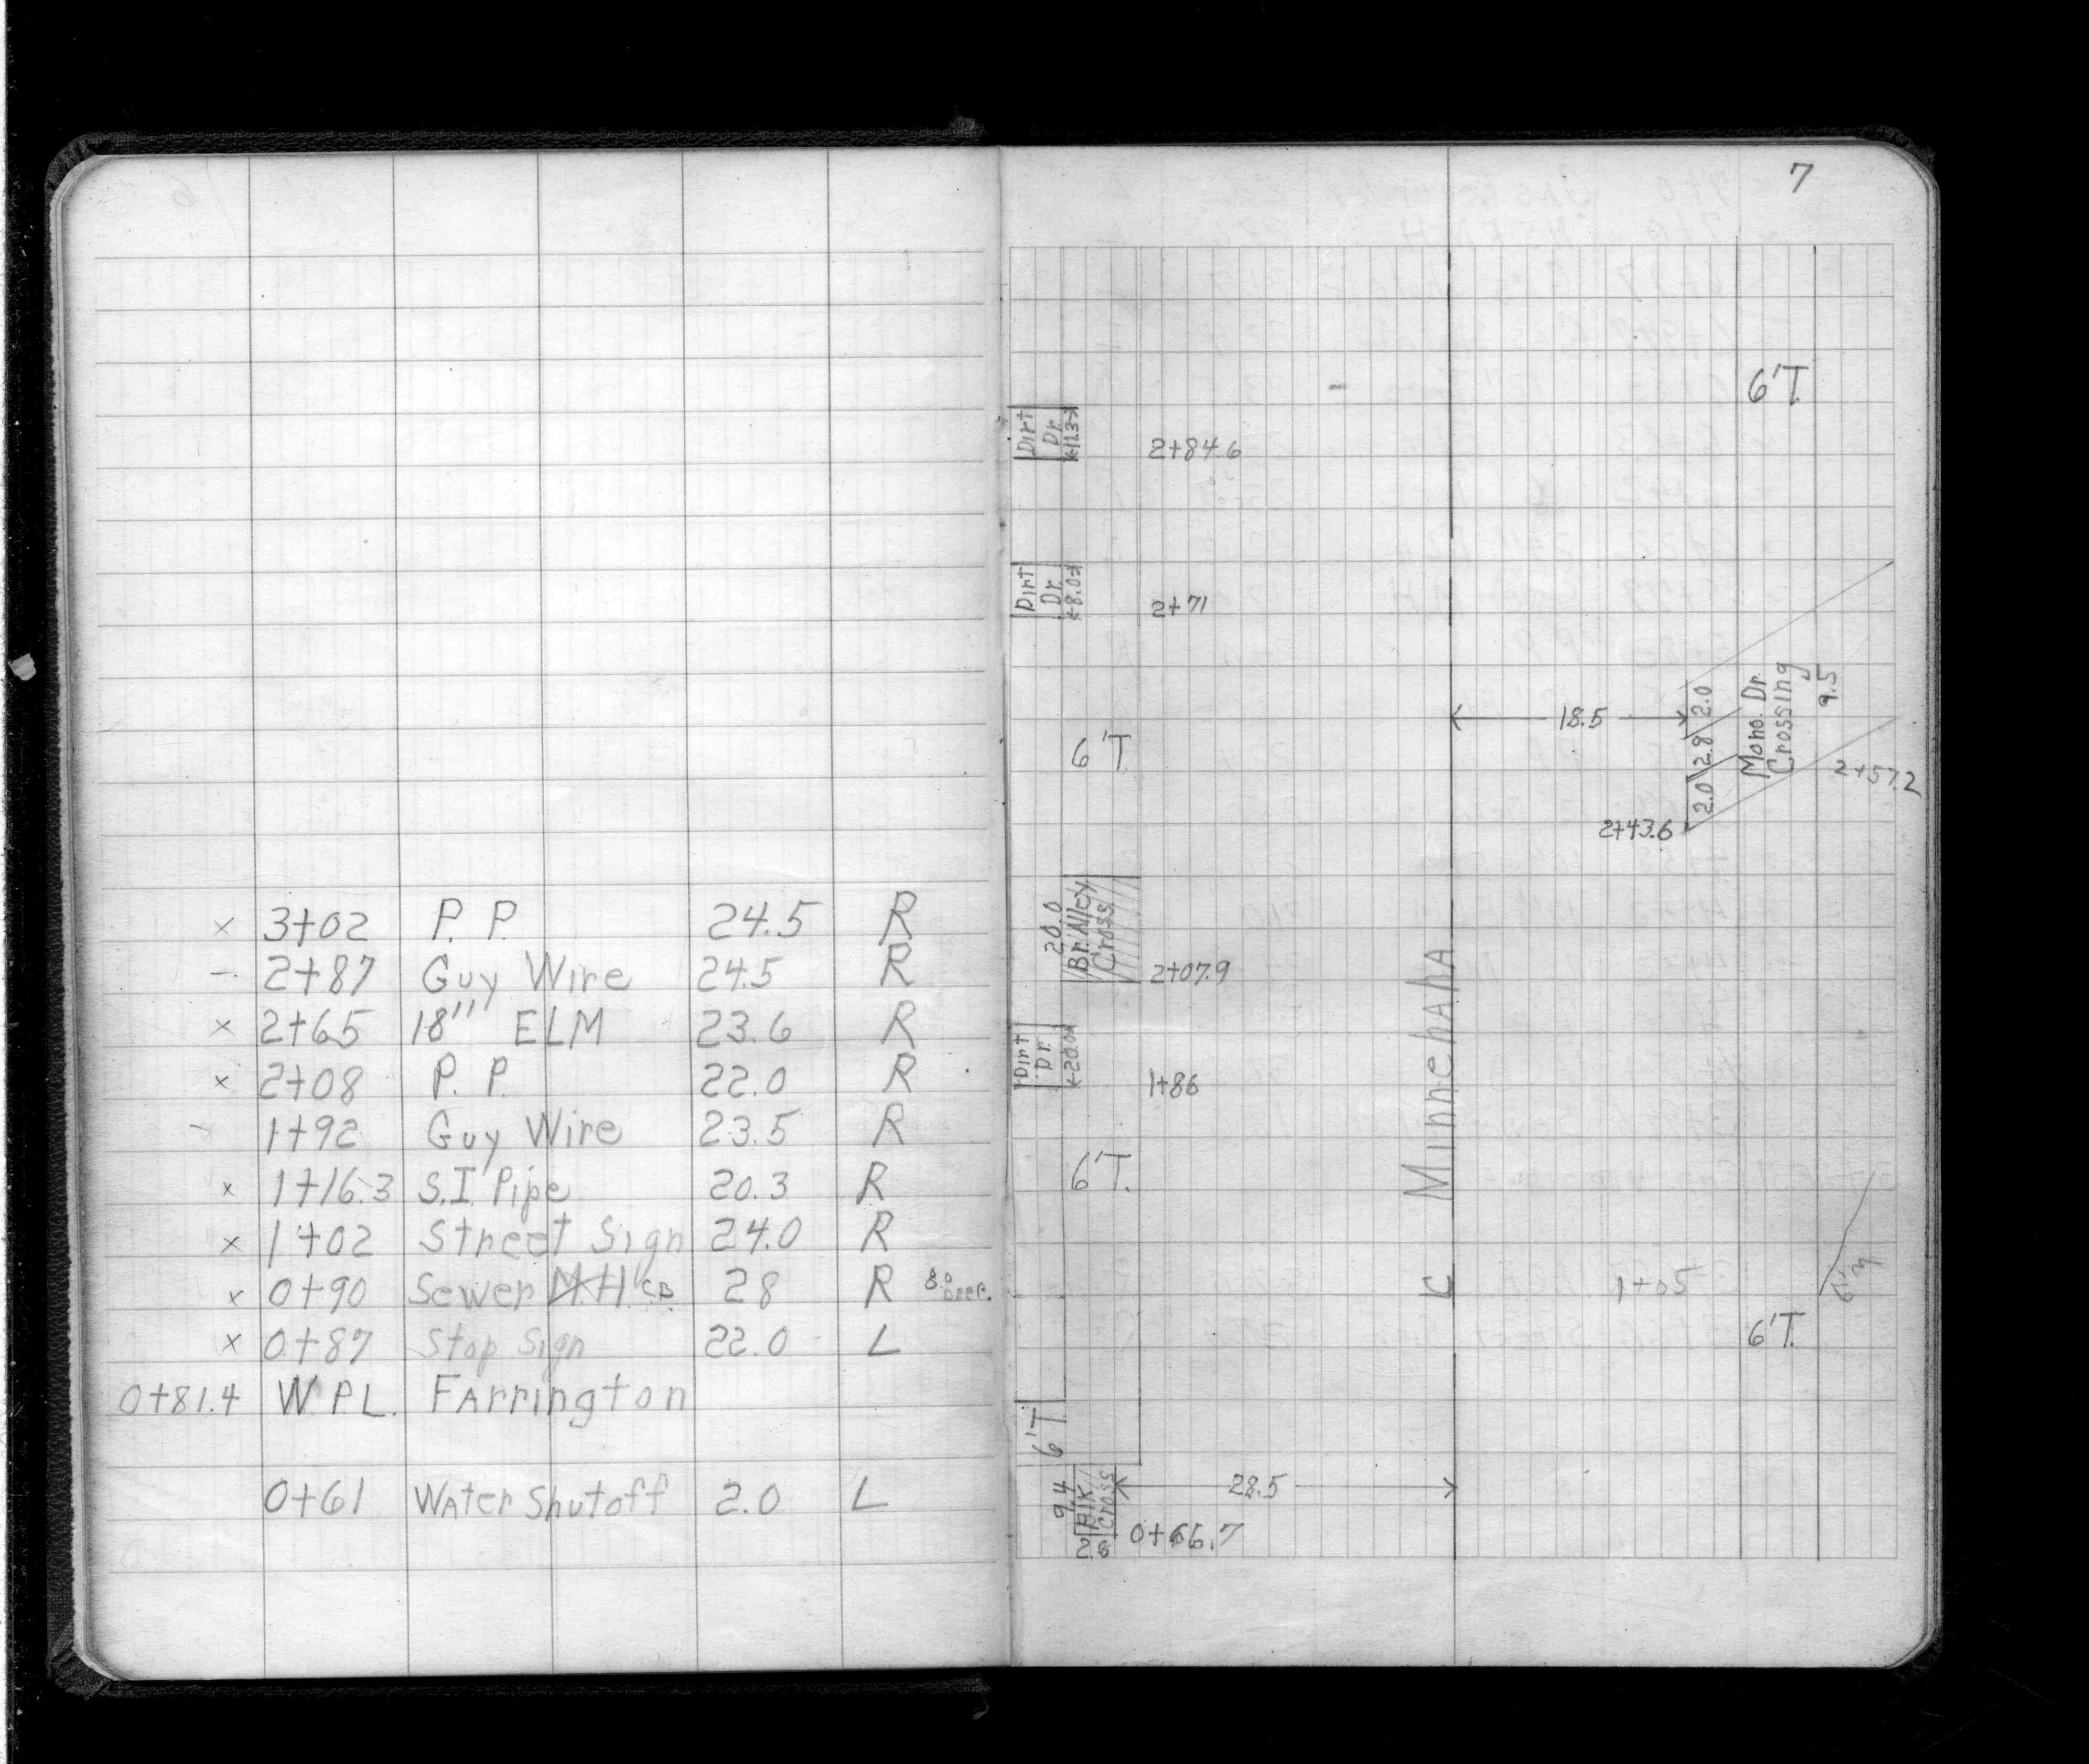 × 3+02 P. P. 24.5 R
- 2+87 Guy Wire 24.5 R
× 2+65 18" ELM 23.6 R
× 2+08 P. P. 22.0 R
- 1+92 Guy Wire 23.5 R
× 1+16.3 S.I. Pipe 20.3 R
× 1+02 Street Sign 24.0 R
× 0+90 Sewer M.H. CB. 28 R 8.0 DEEP.
× 0+87 Stop Sign 22.0 L
0+81.4 W PL. FArrington
0+61 WAter Shutoff 2.0 L
7
6'T
Dirt
Dr.
2+84.6
Dirt
Dr.
8.0
2+71
18.5
2.0
2.8
2.0
Mono. Dr.
Crossing
9.5
2+57.2
2+43.6
6'T
20.0
Br. Alley
Cross.
2+07.9
Dirt
Dr.
20.0
1+86
6'T.
C MinnehAhA
1+05
6'T.
6'T
9.4
Blk.
Cross
28.5
0+66.7